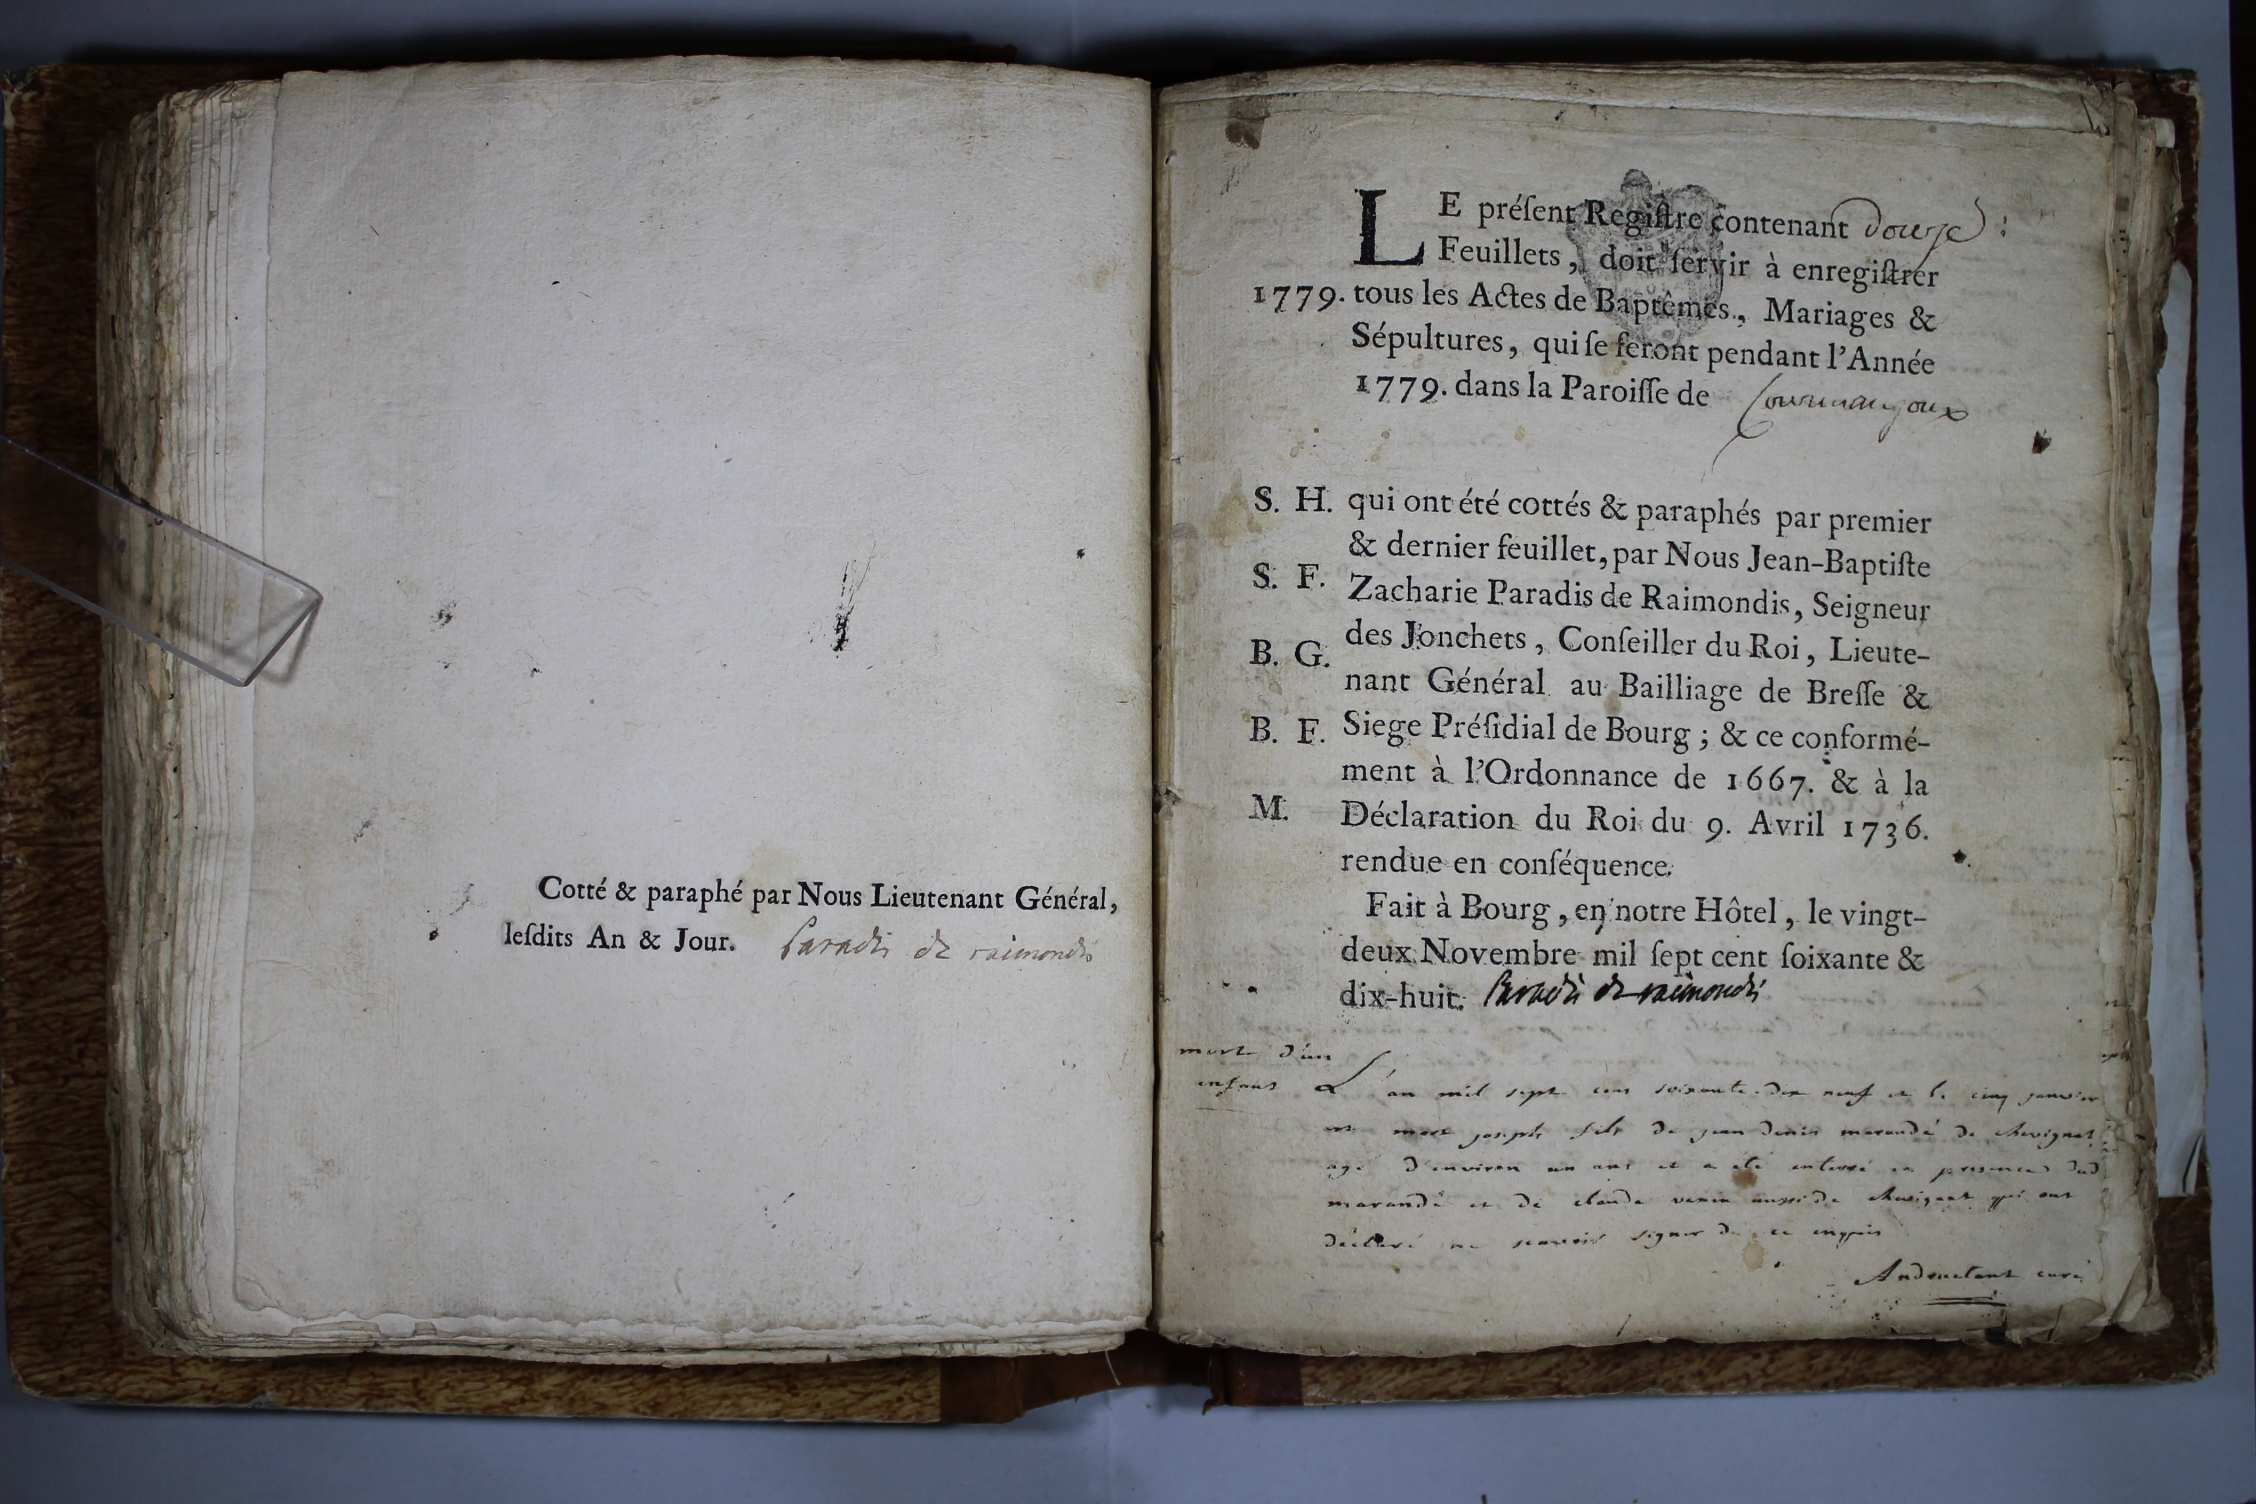 Cotté & paraphé par Nous Lieutenant Général,
leſdits An & Jour. Paradis de raimondis
LE préſent Regiſtre contenant douze
Feuillets, doit ſervir à enregiſtrer
1779. tous les Actes de Baptêmes, Mariages &
Sépultures, qui ſe feront pendant l'Année
1779. dans la Paroiſſe de Courmangoux
S. H. qui ont été cottés & paraphés par premier
& dernier feuillet, par Nous Jean-Baptiſte
S. F. Zacharie Paradis de Raimondis, Seigneur
des Jonchets, Conſeiller du Roi, Lieute-
B. G. nant Général au Bailliage de Breſſe &
B. F. Siege Préſidial de Bourg ; & ce conformé-
ment à l'Ordonnance de 1667. & à la
M. Déclaration du Roi du 9. Avril 1736.
rendue en conſéquence.
Fait à Bourg, en notre Hôtel, le vingt-
deux Novembre mil ſept cent ſoixante &
dix-huit. Paradis de raimondis
mort d'un
enfans
L'an mil sept cens soixante dix neuf et le cinq janvier
est mort joseph fils de jean denis marandé de chevignat
agé d'environ un ans et a eté enterré en presence dud
marandé et de claude aussi de chevignat qui ont
déclaré ne scavoir signer de ce enquis
curé